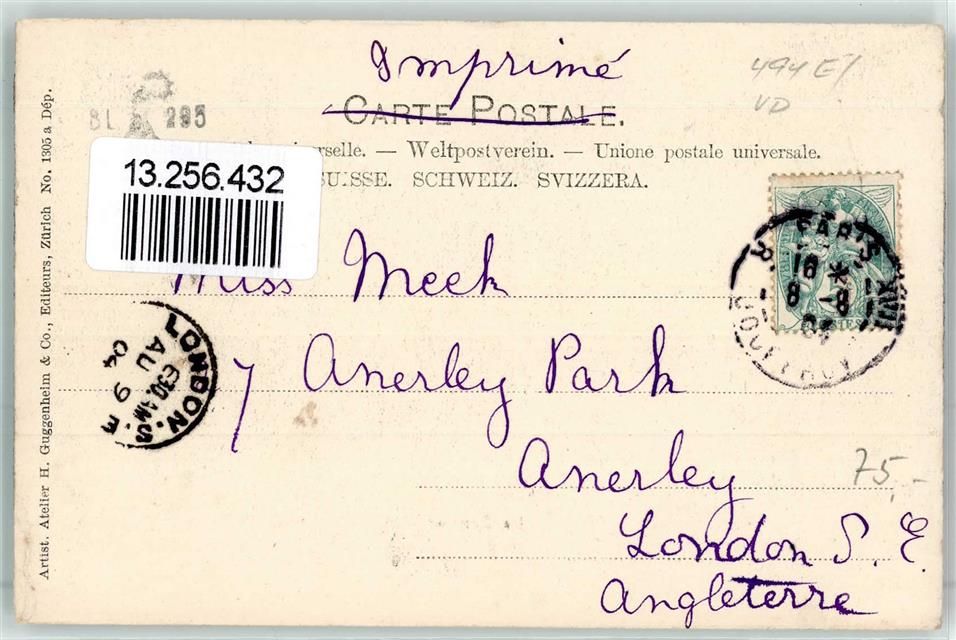 Imprimé
494 E/
VD
CARTE POSTALE.
BL 295
universelle. — Weltpostverein. — Unione postale universale.
SUISSE. SCHWEIZ. SVIZZERA.
13.256.432
Miss Meek
7 Anerley Park
Anerley
London S. E.
Angleterre
75,-
PARIS
8 - 8
04
LONDON. S.E
6 30 AM
AU 9
04
Artist. Atelier H. Guggenheim & Co., Editeurs, Zürich No. 1305 a Dép.